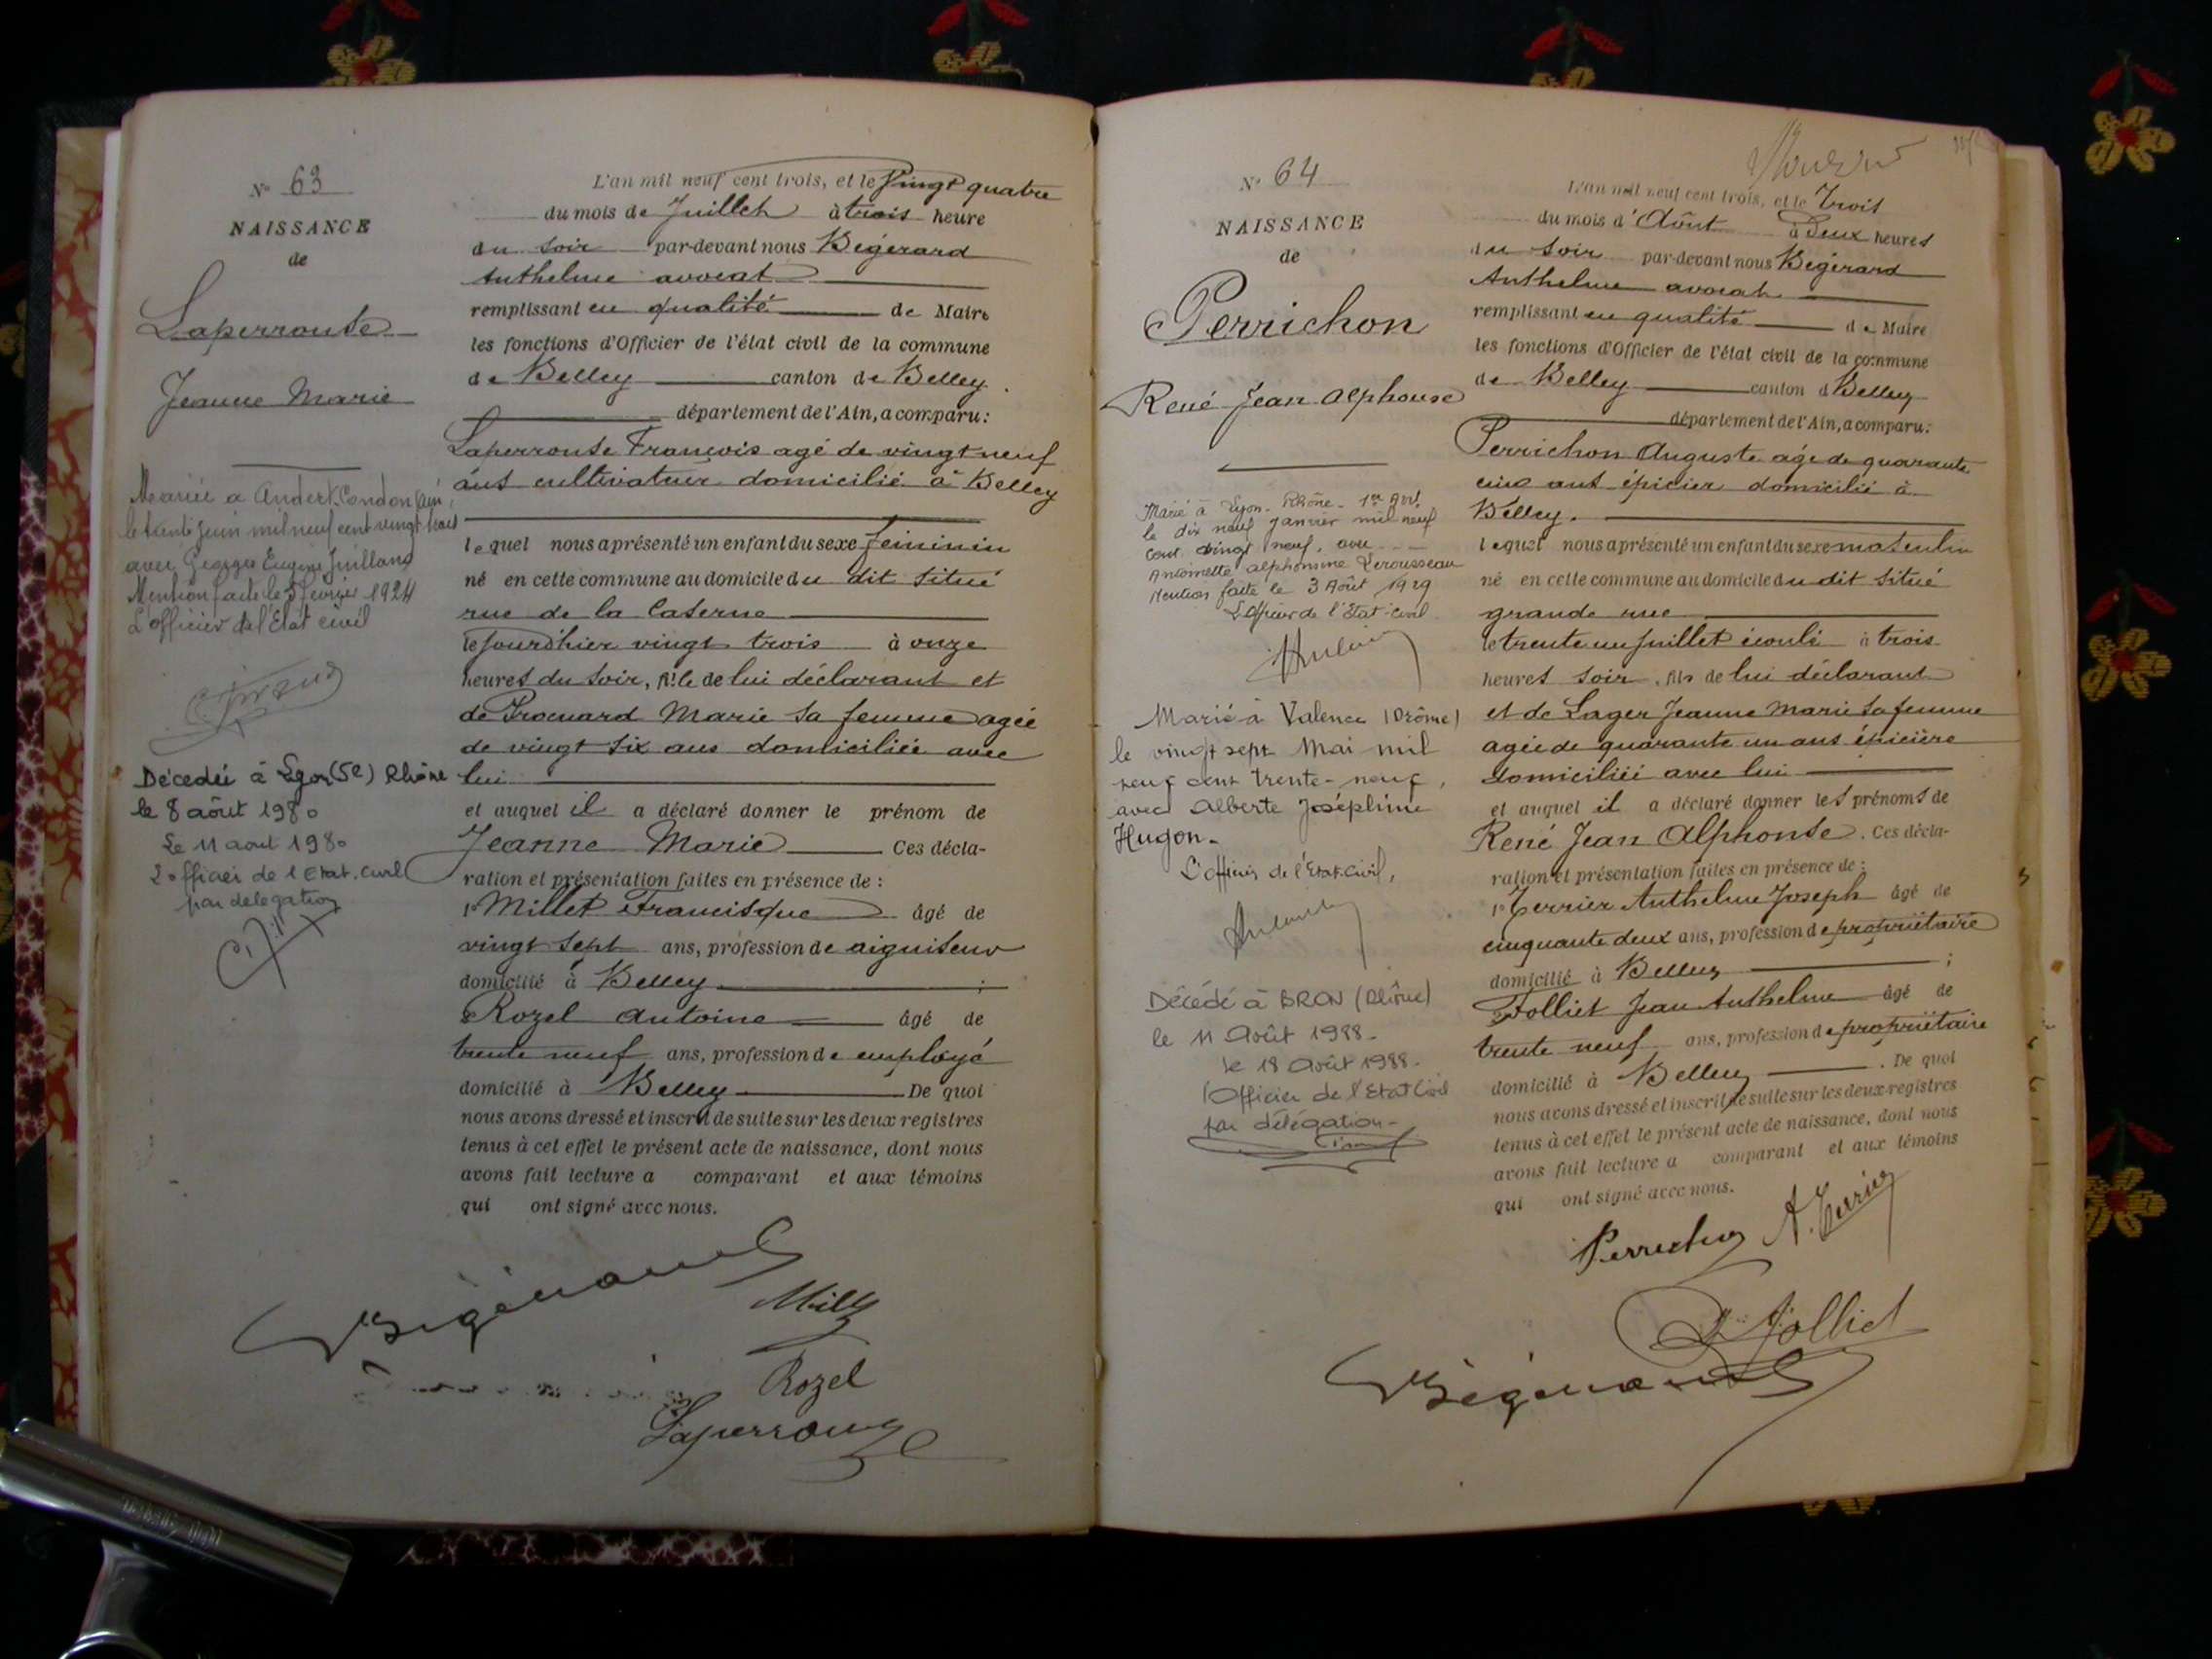 Nº 63
NAISSANCE
de
Laperrouse
Jeanne Marie
Mariée a Andert-Condon Ain,
le trente juin mil neuf cent vingt trois
avec Georges Eugène Juilland
Mention faite le 5 février 1924
L'officier de l'Etat civil
Décédée à Lyon (5e) Rhône
le 8 août 1980
Le 11 aout 1980
L'officier de l'Etat. civil
par délégation
L'an mil neuf cent trois, et le Vingt quatre
du mois de Juillet à trois heure
du soir par-devant nous Bégérard
Anthelme avocat
remplissant en qualité de Maire
les fonctions d'Officier de l'état civil de la commune
de Belley canton de Belley.
département de l'Ain, a comparu:
Laperrouse François agé de vingt neuf
ans cultivateur domicilié à Belley
lequel nous a présenté un enfant du sexe féminin
né en cette commune au domicile du dit situé
rue de la Caserne
le jourdhier vingt trois à onze
heures du soir, fille de lui déclarant et
de Marie sa femme agée
de vingt six ans domiciliée avec
lui
et auquel il a déclaré donner le prénom de
Jeanne Marie Ces décla-
ration et présentation faites en présence de :
1º Millet Francisque âgé de
vingt sept ans, profession de aiguiseur
domicilié à Belley ;
2º Rozel Antoine âgé de
trente neuf ans, profession de employé
domicilié à Belley De quoi
nous avons dressé et inscrit de suite sur les deux registres
tenus à cet effet le présent acte de naissance, dont nous
avons fait lecture a comparant et aux témoins
qui ont signé avec nous.
Bégérard
Millet
Rozel
Laperrouse
Nº 64
NAISSANCE
de
Perrichon
René Jean Alphonse
Marié à Lyon - Rhône - 1er Arrt
le dix neuf Janvier mil neuf
cent vingt neuf, avec
Antoinette Alphonsine Lerousseau
Mention faite le 3 Août 1929
L'officier de l'Etat-civil
Marié à Valence (Drôme)
le vingt sept Mai mil
neuf cent trente-neuf,
avec Alberte Joséphine
Hugon.
L'officier de l'Etat.Civil,
Décédé à BRON (Rhône)
le 11 Août 1988.
le 18 Août 1988.
l'Officier de l'Etat Civil
par délégation -
L'an mil neuf cent trois, et le Trois
du mois d'Août à Deux heures
du soir par-devant nous Bégérard
Anthelme avocat
remplissant en qualité de Maire
les fonctions d'Officier de l'état civil de la commune
de Belley canton d Belley
département de l'Ain, a comparu:
Perrichon Auguste âgé de quarante
cinq ans épicier domicilié à
Belley.
lequel nous a présenté un enfant du sexe masculin
né en cette commune au domicile du dit situé
grande rue
le trente un juillet écoulé à trois
heures soir, fils de lui déclarant
et de Lager Jeanne Marie sa femme
agée de quarante un ans épicière
domiciliée avec lui
et auquel il a déclaré donner les prénoms de
René Jean Alphonse. Ces décla-
ration et présentation faites en présence de :
1º Terrier Anthelme Joseph âgé de
cinquante deux ans, profession de propriétaire
domicilié à Belley ;
2º Folliet Jean Anthelme âgé de
trente neuf ans, profession de propriétaire
domicilié à Belley . De quoi
nous avons dressé et inscrit de suite sur les deux registres
tenus à cet effet le présent acte de naissance, dont nous
avons fait lecture a comparant et aux témoins
qui ont signé avec nous.
Perrichon A. Terrier
Folliet
Bégérard